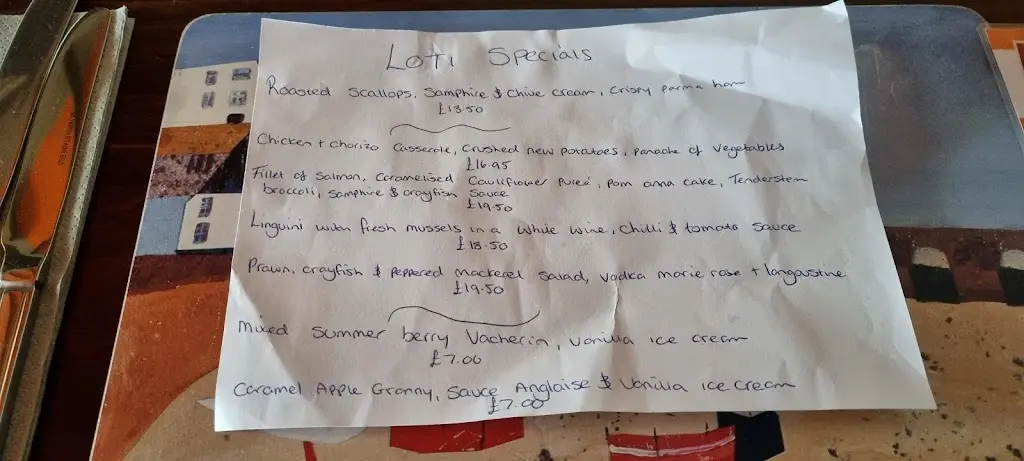 LOTI Specials
Roasted Scallops, Samphire & Chive Cream, Crispy parma ham
£13.50
Chicken + Chorizo Casserole, Crushed new potatoes, panache of vegetables
£16.95
Fillet of Salmon, Caramelised Cauliflower Pureé, pom anna cake, Tenderstem
broccoli, Samphire & crayfish Sauce
£19.50
Linguini with fresh mussels in a white wine, chilli & tomato sauce
£18.50
Prawn, crayfish & peppered mackerel Salad, vodka marie rose + langoustine
£19.50
Mixed Summer berry Vacherin, Vanilla ice cream
£7.00
Caramel Apple Granny, Sauce Anglaise & Vanilla ice cream
£7.00